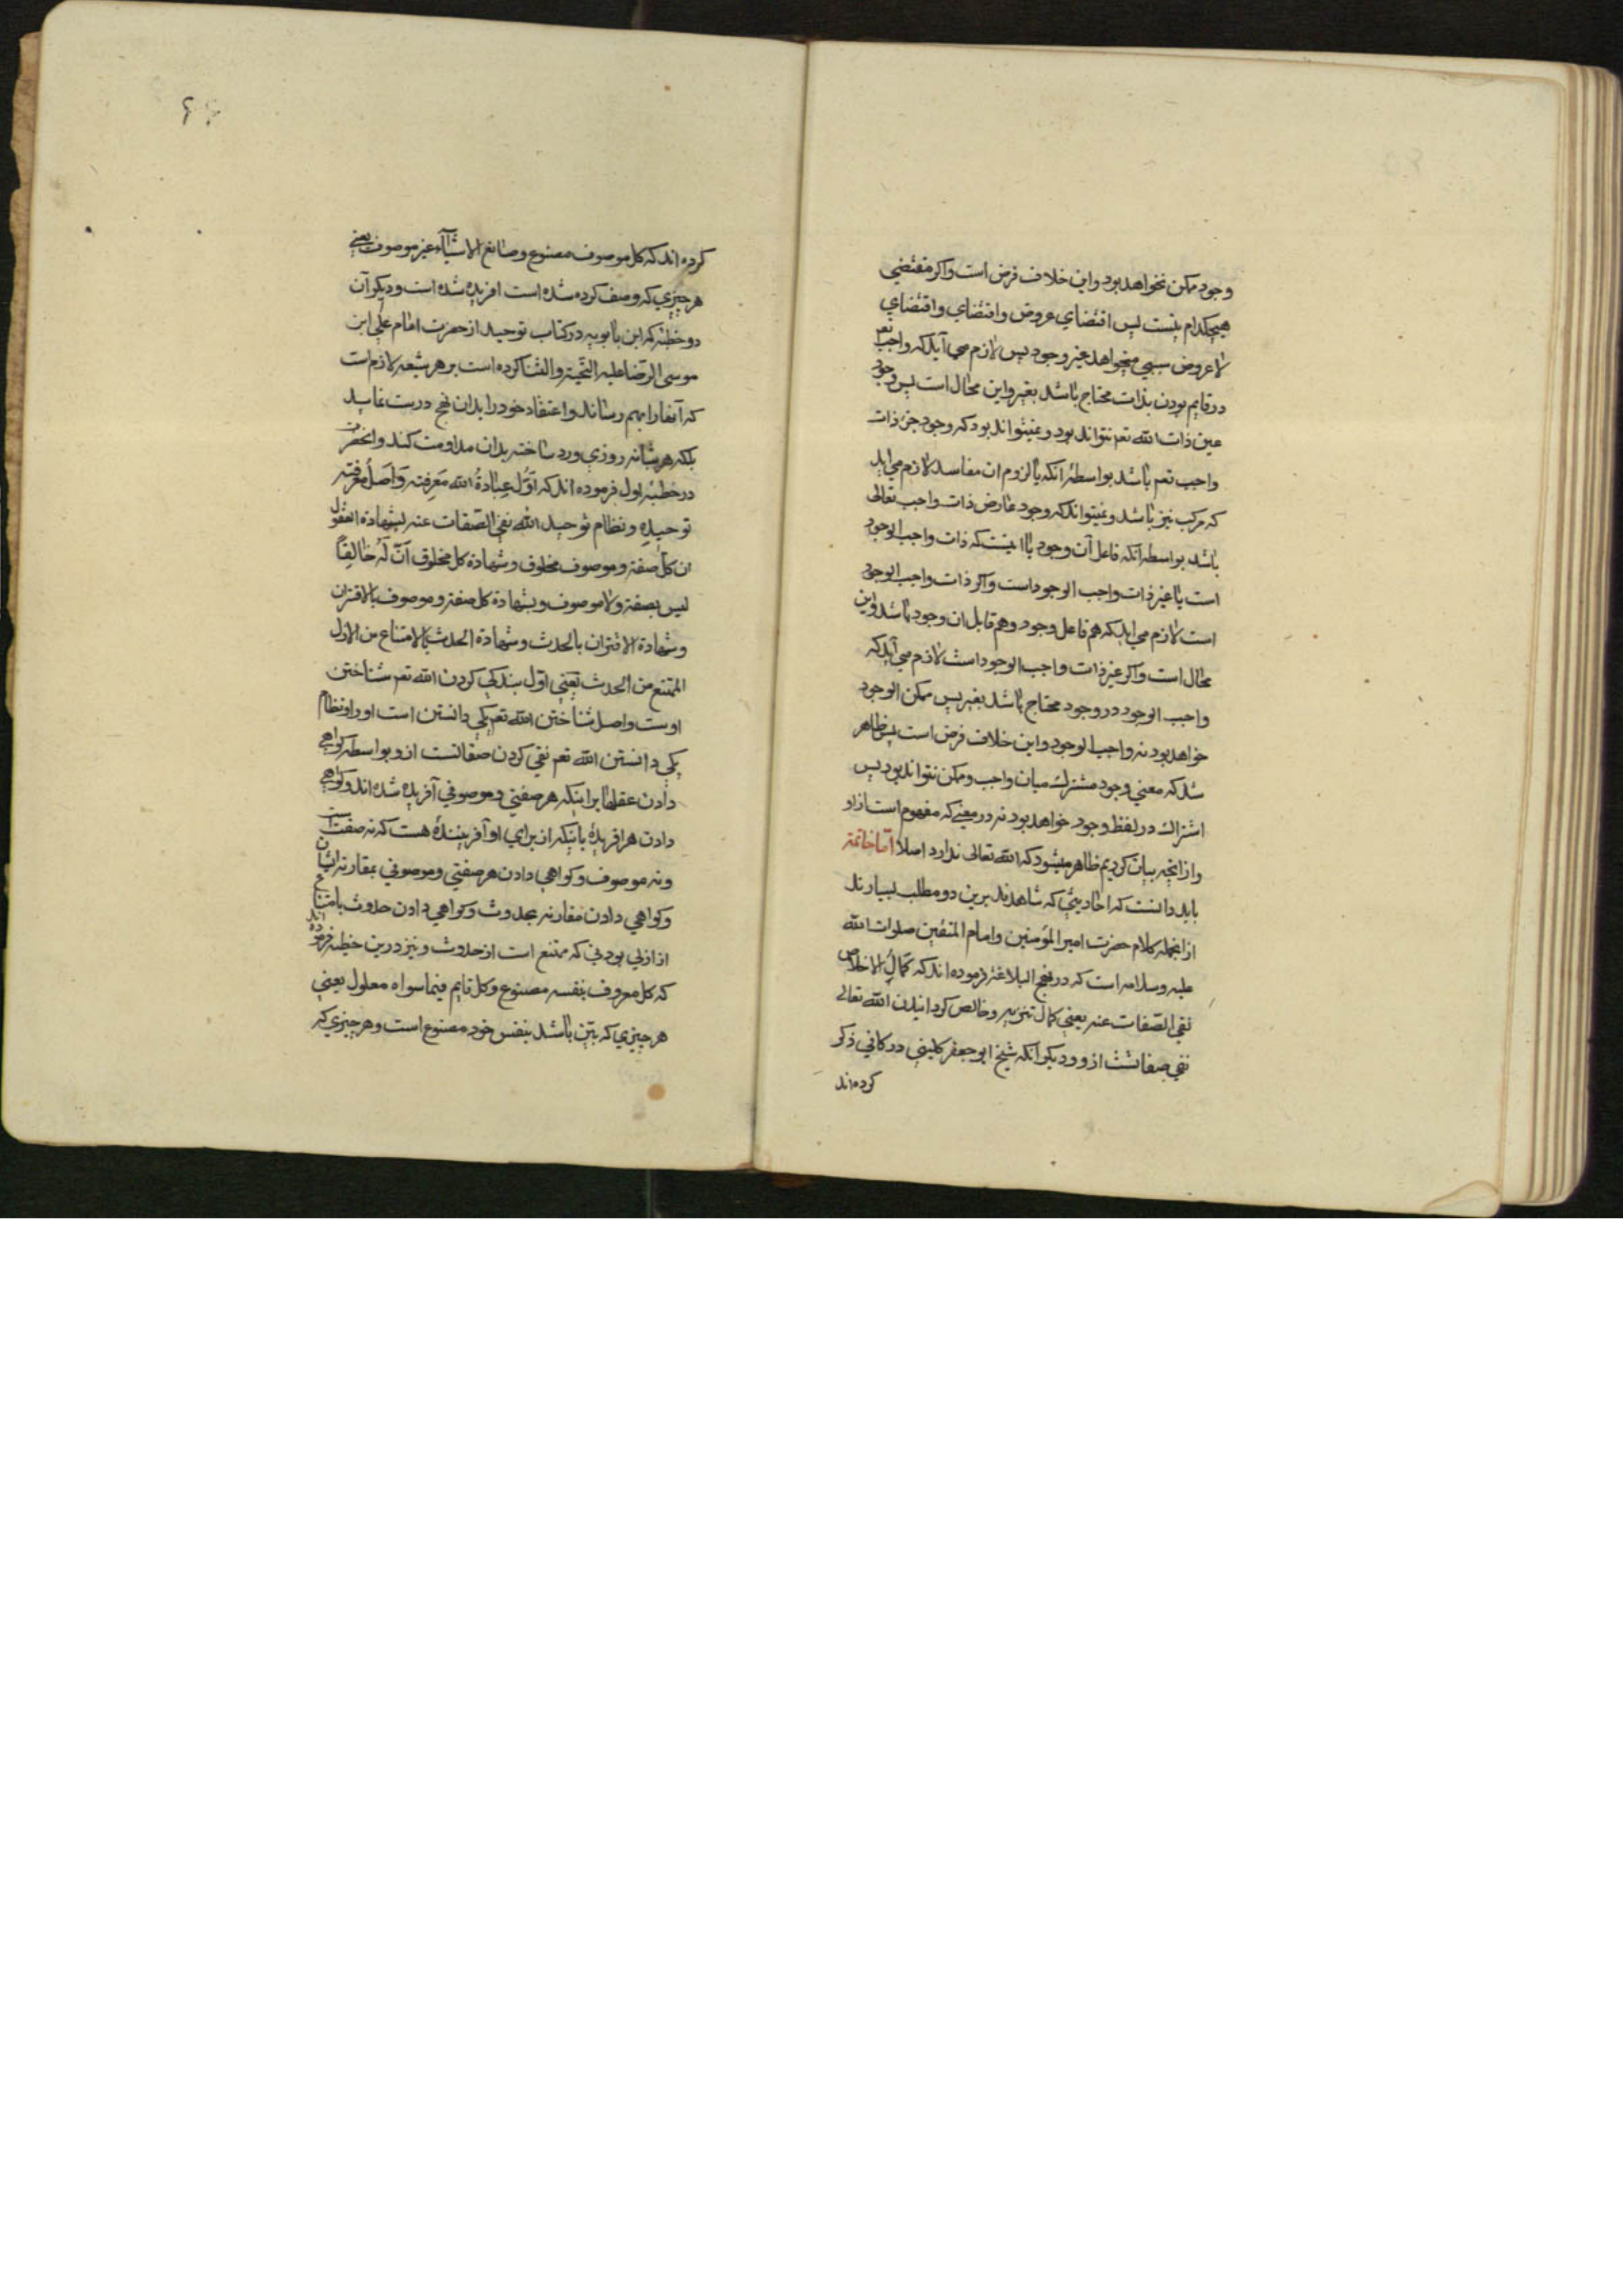 وجود ممکن نخواهد بود و این خلاف فرض است و اکر مقتضی
هیچکدام نیست پس اقتضاي عروض و اقتضاي و اقتضاي
لا عروض سببي میخواهد غیر وجود پس لازم می آید که واجب تعم
در قایم بودن بذات محتاج باشد بغیر و این محال است پس وجود
عین ذات الله تعم نتواند بود و نمیتواند بود که وجود جزء ذات
واجب تعم باشد بواسطهٔ آنکه با لزوم ان مفاسد لازم می اید
که مرکب نیز باشد و نمیتواند که وجود عارض ذات واجب تعالی
باشد بواسطه آنکه فاعل آن وجود یا اینست که ذات واجب الوجود
است یا غیر ذات واجب الوجود است و اکر ذات واجب الوجود
است لازم می اید که هم فاعل وجود و هم قابل ان وجود باشد و این
محال است و اکر غیر ذات واجب الوجود است لازم می آید که
واجب الوجود در وجود محتاج باشد بغیر پس ممکن الوجود
خواهد بود نه واجب الوجود و این خلاف فرض است پس ظاهر
شد که معنی وجود مشترك میان واجب و ممکن نتواند بود پس
اشتراك در لفظ وجود خواهد بود نه در معنی که مفهوم است از او
و از انچه بیان کردیم ظاهر میشود که الله تعالی ندارد اصلا اما خاتمة
باید دانست که احادیثی که شاهدند برین دو مطلب بسیارند
از انجمله کلام حضرت امیر المؤمنین و امام المتقین صلوات الله
علیه و سلامه است که در نهج البلاغة فرموده اند که کمال الاخلاص
نفی الصفات عنه یعنی کمال تنزیه و خالص کردانیدن الله تعالی
نفی صفاتست از و و دیکر آنکه شیخ ابو جعفر کلینی در کافی ذکر
کرده اند
۶۶
کرده اند که کل موصوف مصنوع و صانع الاشیآء غیر موصوف یعنی
هر چیزي که وصف کرده شده است افریده شده است و دیکر آن
دو خطبه که ابن بابویه در کتاب توحید از حضرت امام علی ابن
موسی الرضا علیه التحیة و الثنا کرده است بر هر شیعه لازم است
که آنها را بهم رساند و اعتقاد خود را بدان نهج درست نماید
بلکه هر شبانه روزي ورد ساخته بدان مداومت کند و انحضرت
در خطبهٔ اول فرموده اند که اوّل عبادة الله معرفته و اصل معرفته
توحیده و نظام توحید الله نفی الصفات عنه بشهادة العقول
ان کل صفة و موصوف مخلوق و شهادة کل مخلوق انّ له خالقاً
لیس بصفة و لا موصوف و بشهادة کل صفة و موصوف بالاقتران
و شهادة الاقتران بالحدث و شهادة الحدث بالامتناع من الازل
الممتنع من الحدث یعنی اوّل بندکی کردن الله تعم شناختن
اوست و اصل شناختن الله تعم یکی دانستن است او را و نظام
یکی دانستن الله تعم نفی کردن صفاتست از و بواسطه کواهی
دادن عقلها بر اینکه هر صفتی و موصوفی آفریده شده اند و کواهی
دادن هر افریدهٔ باینکه از براي او آفرینندهٔ هست که نه صفت است
و نه موصوف و کواهی دادن هر صفتی و موصوفی بمقارنه ایشان
و کواهی دادن مقارنه بحدوث و کواهی دادن حدوث بامتناع
از ازلی بودنی که ممتنع است از حدوث و نیز درین خطبه فرموده اند
که کل معروف بنفسه مصنوع و کل قایم فیما سواه معلول یعنی
هر چیزي که بیّن باشد بنفس خود مصنوع است و هر چیزي که